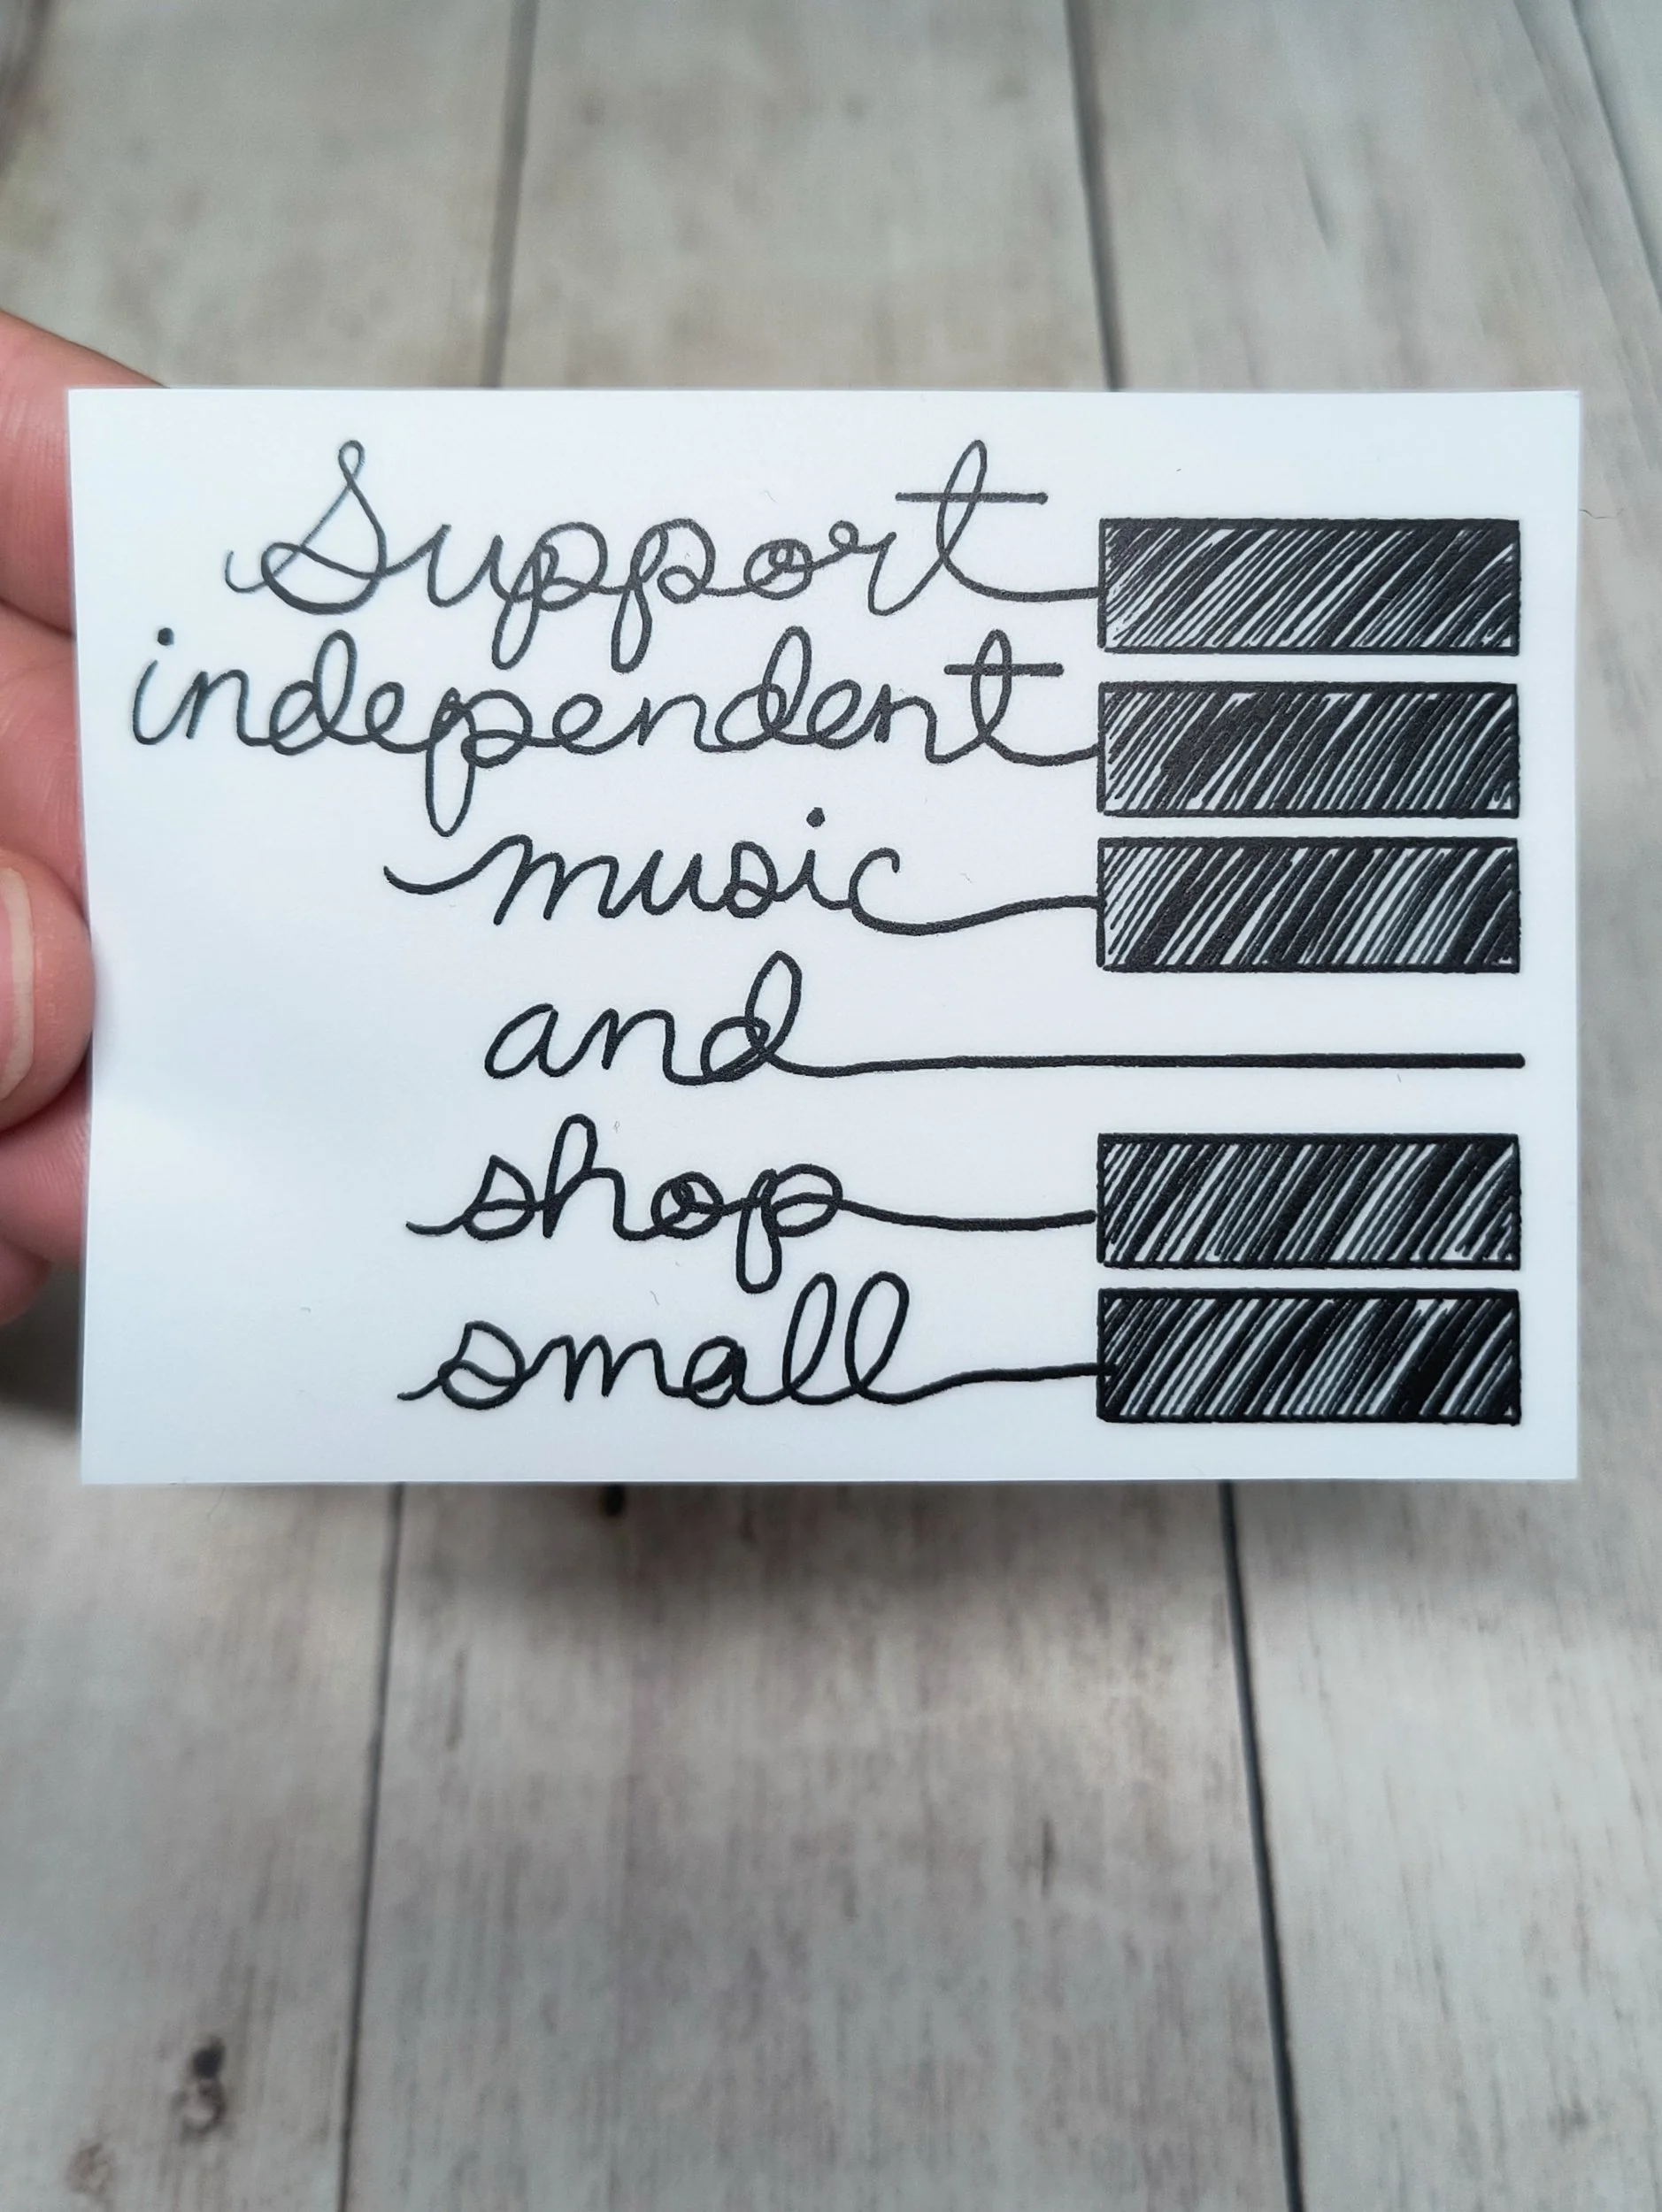 Support
independent
music
and
shop
small